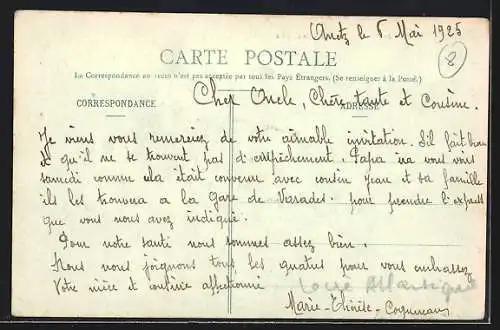 Anetz le 5 Mai 1925
8
CARTE POSTALE
La Correspondance au recto n'est pas acceptée par tous les Pays Étrangers. (Se renseigner à la Poste).
CORRESPONDANCE
ADRESSE
Cher Oncle, Chère tante et Cousine.
Je viens vous remerciez de votre aimable invitation. S'il fait beau
et qu'il ne se trouvent pas d'empêchement. Papa ira vous vous
samedi comme cela était convenu avec cousin Jean et sa famille
ils les trouvera a la Gare de Varades. pour prendre l'express
que vous nous avez indiqué.
Pour notre santé nous sommes assez bien.
Nous nous joignons tous les quatres pour vous embrasser
Votre nièce et cousine affectionné
Loire Atlantique
Marie-Thérèse